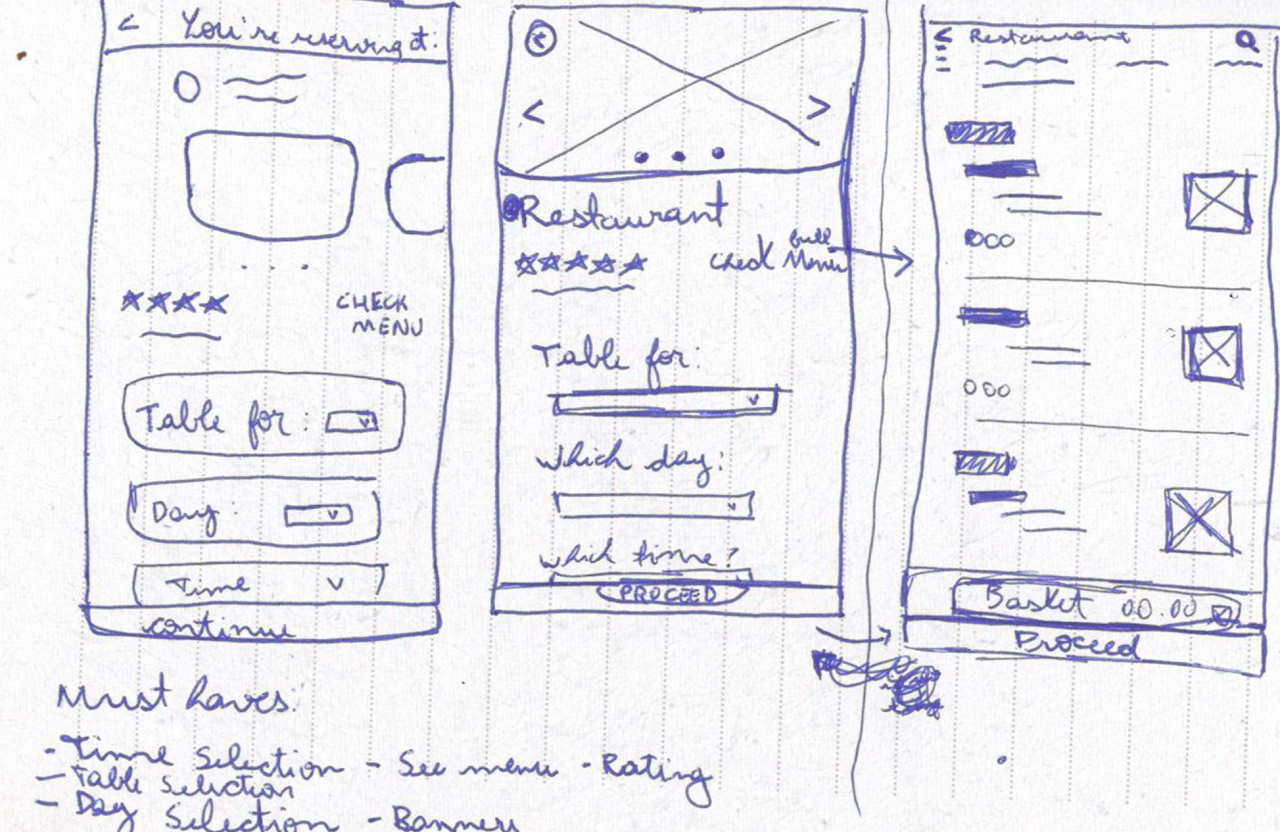 < You're reserving at:
CHECK
MENU
Table for:
Day:
Time
continue
Restaurant
Check full Menu
Table for:
Which day:
Which time?
PROCEED
Restaurant
Basket 00.00
Proceed
Must haves:
- Time Selection - See menu - Rating
- Table Selection
- Day Selection - Banners